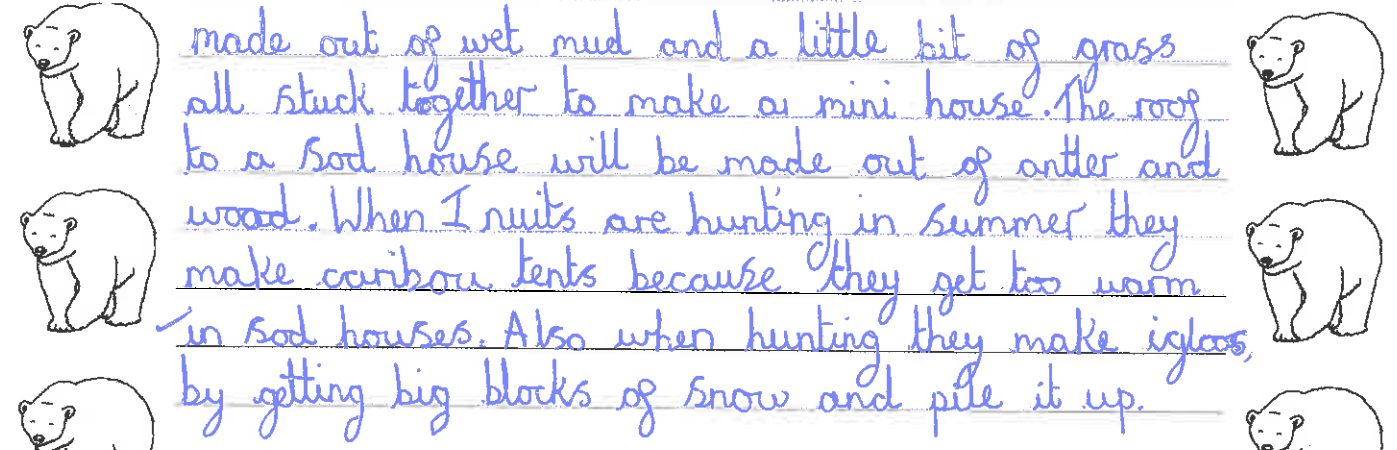 made out of wet mud and a little bit of grass
all stuck together to make a mini house. The roof
to a sod house will be made out of antler and
wood. When Inuits are hunting in summer they
make caribou tents because they get too warm
in sod houses. Also when hunting they make igloos,
by getting big blocks of snow and pile it up.